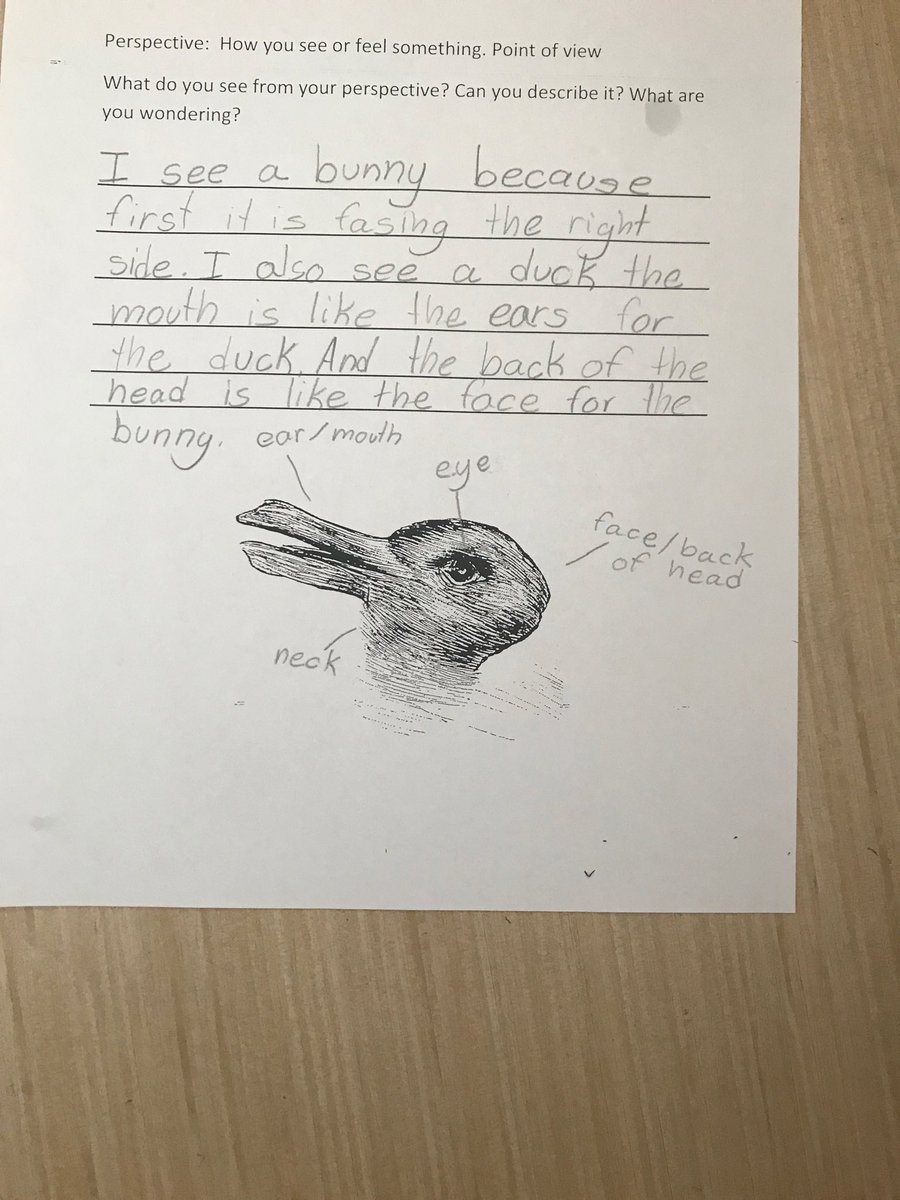 Perspective: How you see or feel something. Point of view
What do you see from your perspective? Can you describe it? What are
you wondering?
I see a bunny because
first it is fasing the right
side. I also see a duck the
mouth is like the ears for
the duck. And the back of the
head is like the face for the
bunny.
ear/mouth
eye
face/back
of head
neck